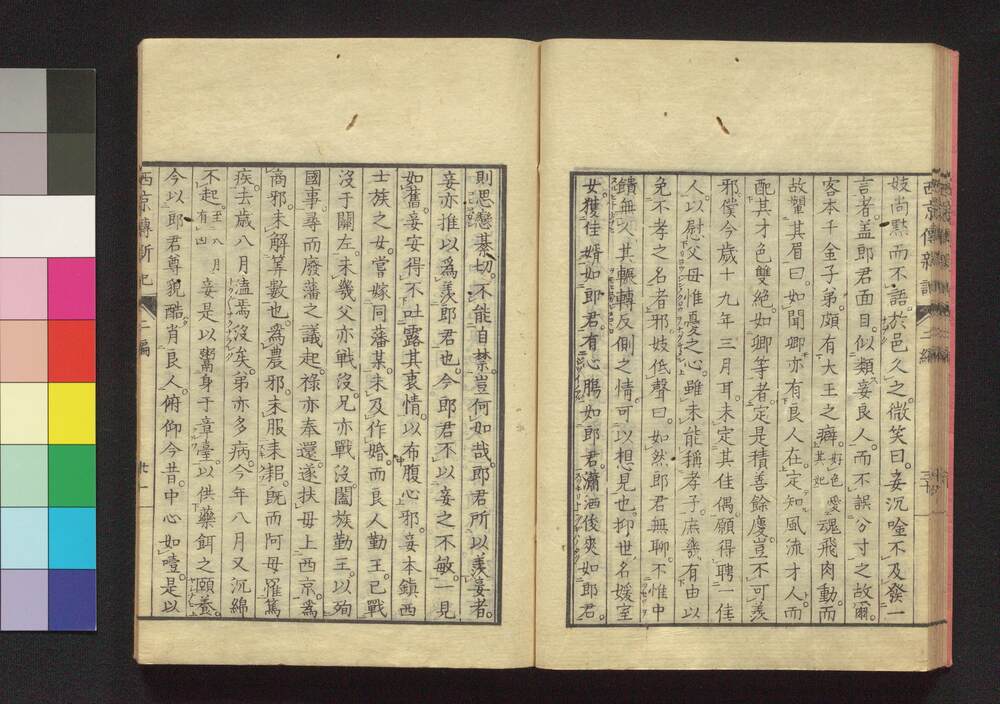 妓尚黙而不語於邑久之微笑曰妾沉吟不及發一
言者。盖郎君面目。似類妾良人。而不誤分寸之故爾。
客本千金子弟。頗有大王之癖。好色愛其妃魂飛肉動。而
故顰其眉曰。如聞卿亦有良人在。定知風流才人。而
配其才色雙絕。如卿等者。定是積善餘慶。豈不可羨
邪僕今歲十九年三月耳。未定其佳偶。願得聘一佳
人。以慰父母惟憂之心。雖未能稱孝子。庶幾有由以
免不孝之名者邪。妓低聲曰。如然郎君無聊。不惟中
饋無人其輾轉反側之情。可以想見也。抑世名媛室
女。獲佳婿如郎君。有心膓如郎君。瀟洒俊爽如郎君。
則思戀綦切。不能自禁。豈何如哉。郎君所以羨妾者。
妾亦推以為羨郎君也。今郎君不以妾之不敏。一見
如舊。妾安得不吐露其衷情。以布腹心邪。妾本鎭西
士族之女。嘗嫁同藩某。未及作婚。而良人勤王。已戰
沒于關左。未幾父亦戰沒。兄亦戰沒。闔族勤王。以殉
國事。尋而廢藩之議起。祿亦奉還。遂扶母上西京。為
商邪。未解筭數也。為農邪。未服耒耜。既而阿母罹篤
疾。去歲八月溘焉沒矣。弟亦多病。今年八月又沉綿
不起。至八月有四妾是以鬻身于章臺。以供藥餌之頤養。
今以郎君尊貌酷肖良人。俯仰今昔。中心如噎。是以
西京傳新記 二編 廿一